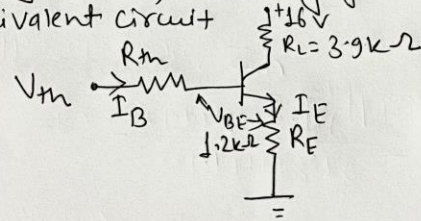 ivalent circuit
+16V
Rth
RL = 3.9kΩ
Vth
IB
VBE
IE
1.2kΩ
RE